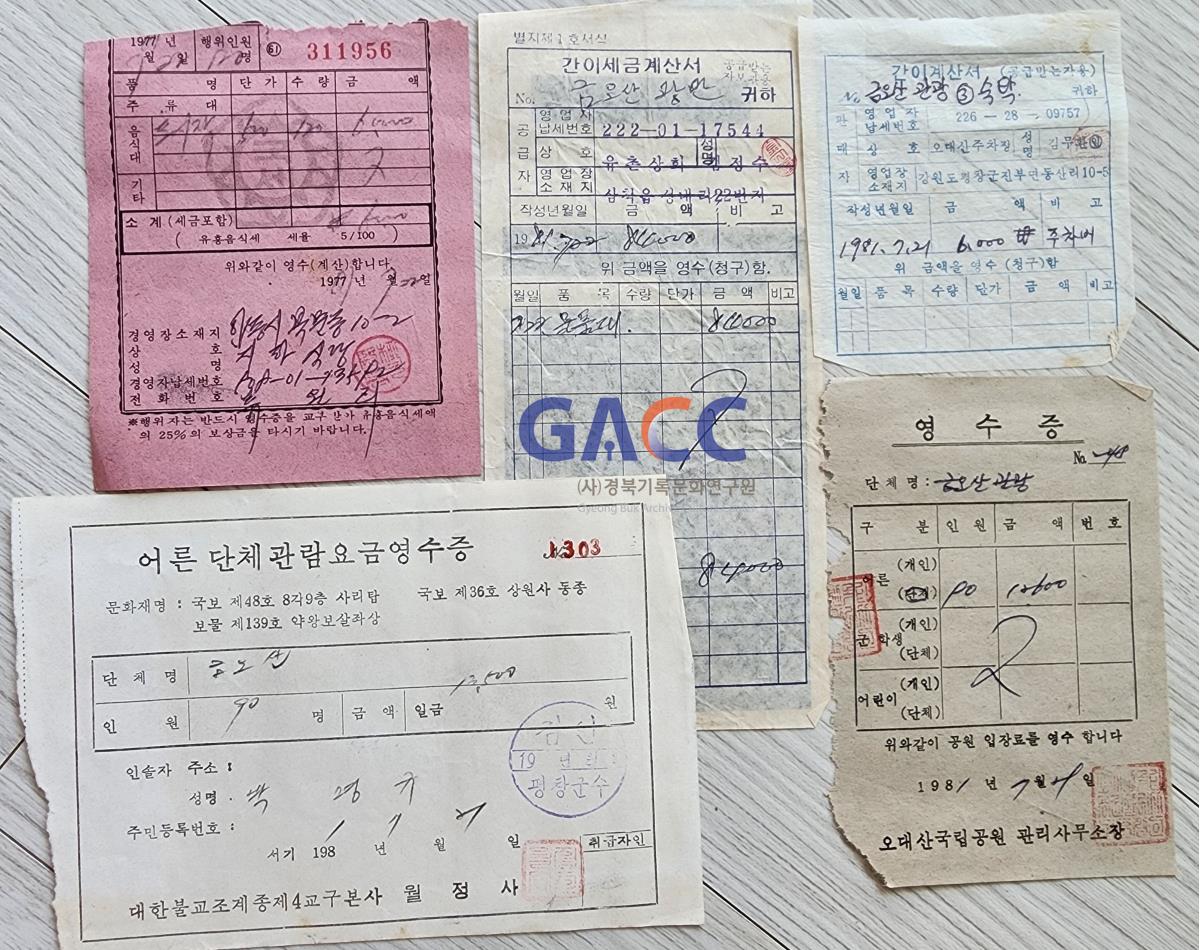 1977년 행위인원 61 311956
월 일 120명
품 명 단가 수량 금 액
주 류 대
음식대
120
기타
소 계 (세금포함)
( 유흥음식세 세율 5/100 )
위와같이 영수(계산)합니다.
1977년 월 일
경영장소재지 안동시
상 호 식당
성 명
경영자납세번호
전 화 번 호
※행위자는 반드시 영수증을 교구 받가 유흥음식세액
의 25%의 보상금을 타시기 바랍니다.
별지제1호서식
간이세금계산서 공급받는자보관용
No. 금오산 관광 귀하
공급자
영업자납세번호 222-01-17544
상 호 유촌상회 성명 김정수
영업장소재지 삼척읍 성내리22번지
작성년월일 금 액 비 고
1981. 7. 22 84000
위 금액을 영수(청구)함.
월일 품 목 수량 단가 금 액 비고
84000
84000
간이계산서 (공급받는자용)
No. 금오산 관광 숙박 귀하
영업자납세번호 226-28-09757
상 호 오대산주차장 성명
영업장소재지 강원도평창군진부면동산리10-5
작성년월일 금 액 비 고
1981. 7. 21 6,000 주차비
위 금액을 영수(청구)함
월일 품 목 수량 단가 금 액 비고
GACC
(사)경북기록문화연구원
Gyeong Buk Archiv
어른 단체관람요금영수증 1303
문화재명 : 국보 제48호 8각9층 사리탑 국보 제36호 상원사 동종
보물 제139호 약왕보살좌상
단 체 명 금오산
인 원 90 명 금 액 일금 13,500 원
인솔자 주소 :
성명 . 박 경 규
주민등록번호 :
서기 1981 년 7 월 21 일 취급자인
대한불교조계종제4교구본사 월 정 사
검 인
19 년 월 일
평창군수
영 수 증
No.
단체명 : 금오산관광
구 분 인 원 금 액 번 호
어른 (개인)
(단체) 90 12600
군.학생 (개인)
(단체)
어린이 (개인)
(단체)
위와같이 공원 입장료를 영수 합니다
1981 년 7월 21일
오대산국립공원 관리사무소장